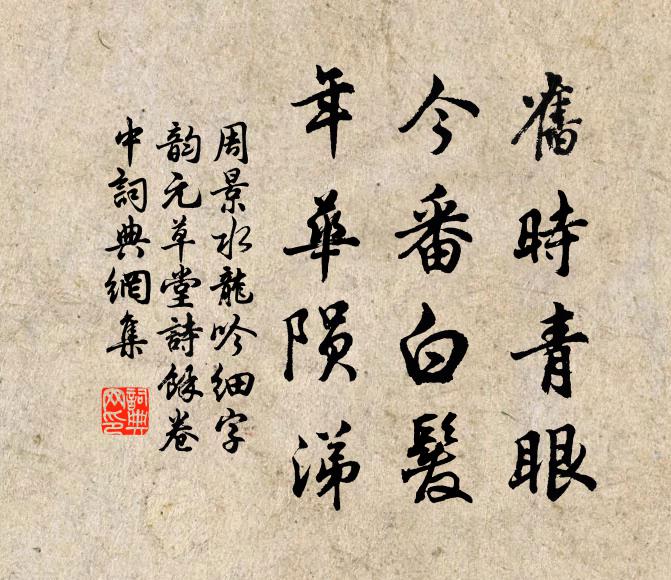 舊時青眼
今番白髮
年華隕涕
周景水龍吟细字
韵元草堂詩餘卷
中詞典網集
詞典網印